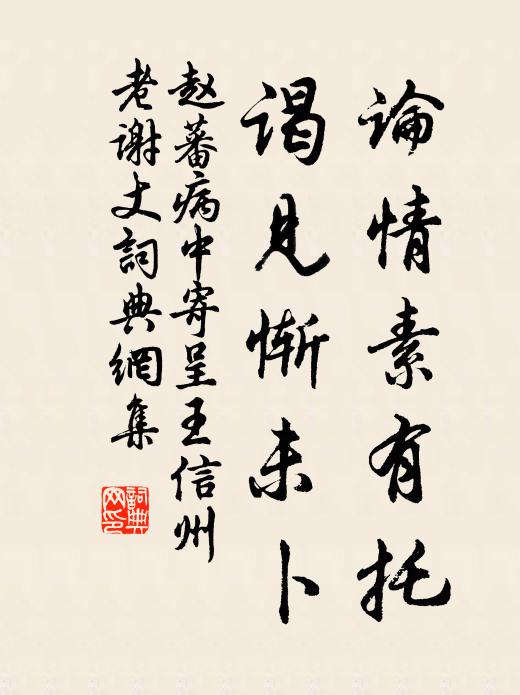 論情素有托
謁見慚未卜
赵蕃病中寄呈王信州
老谢丈詞典網集
詞典
网印